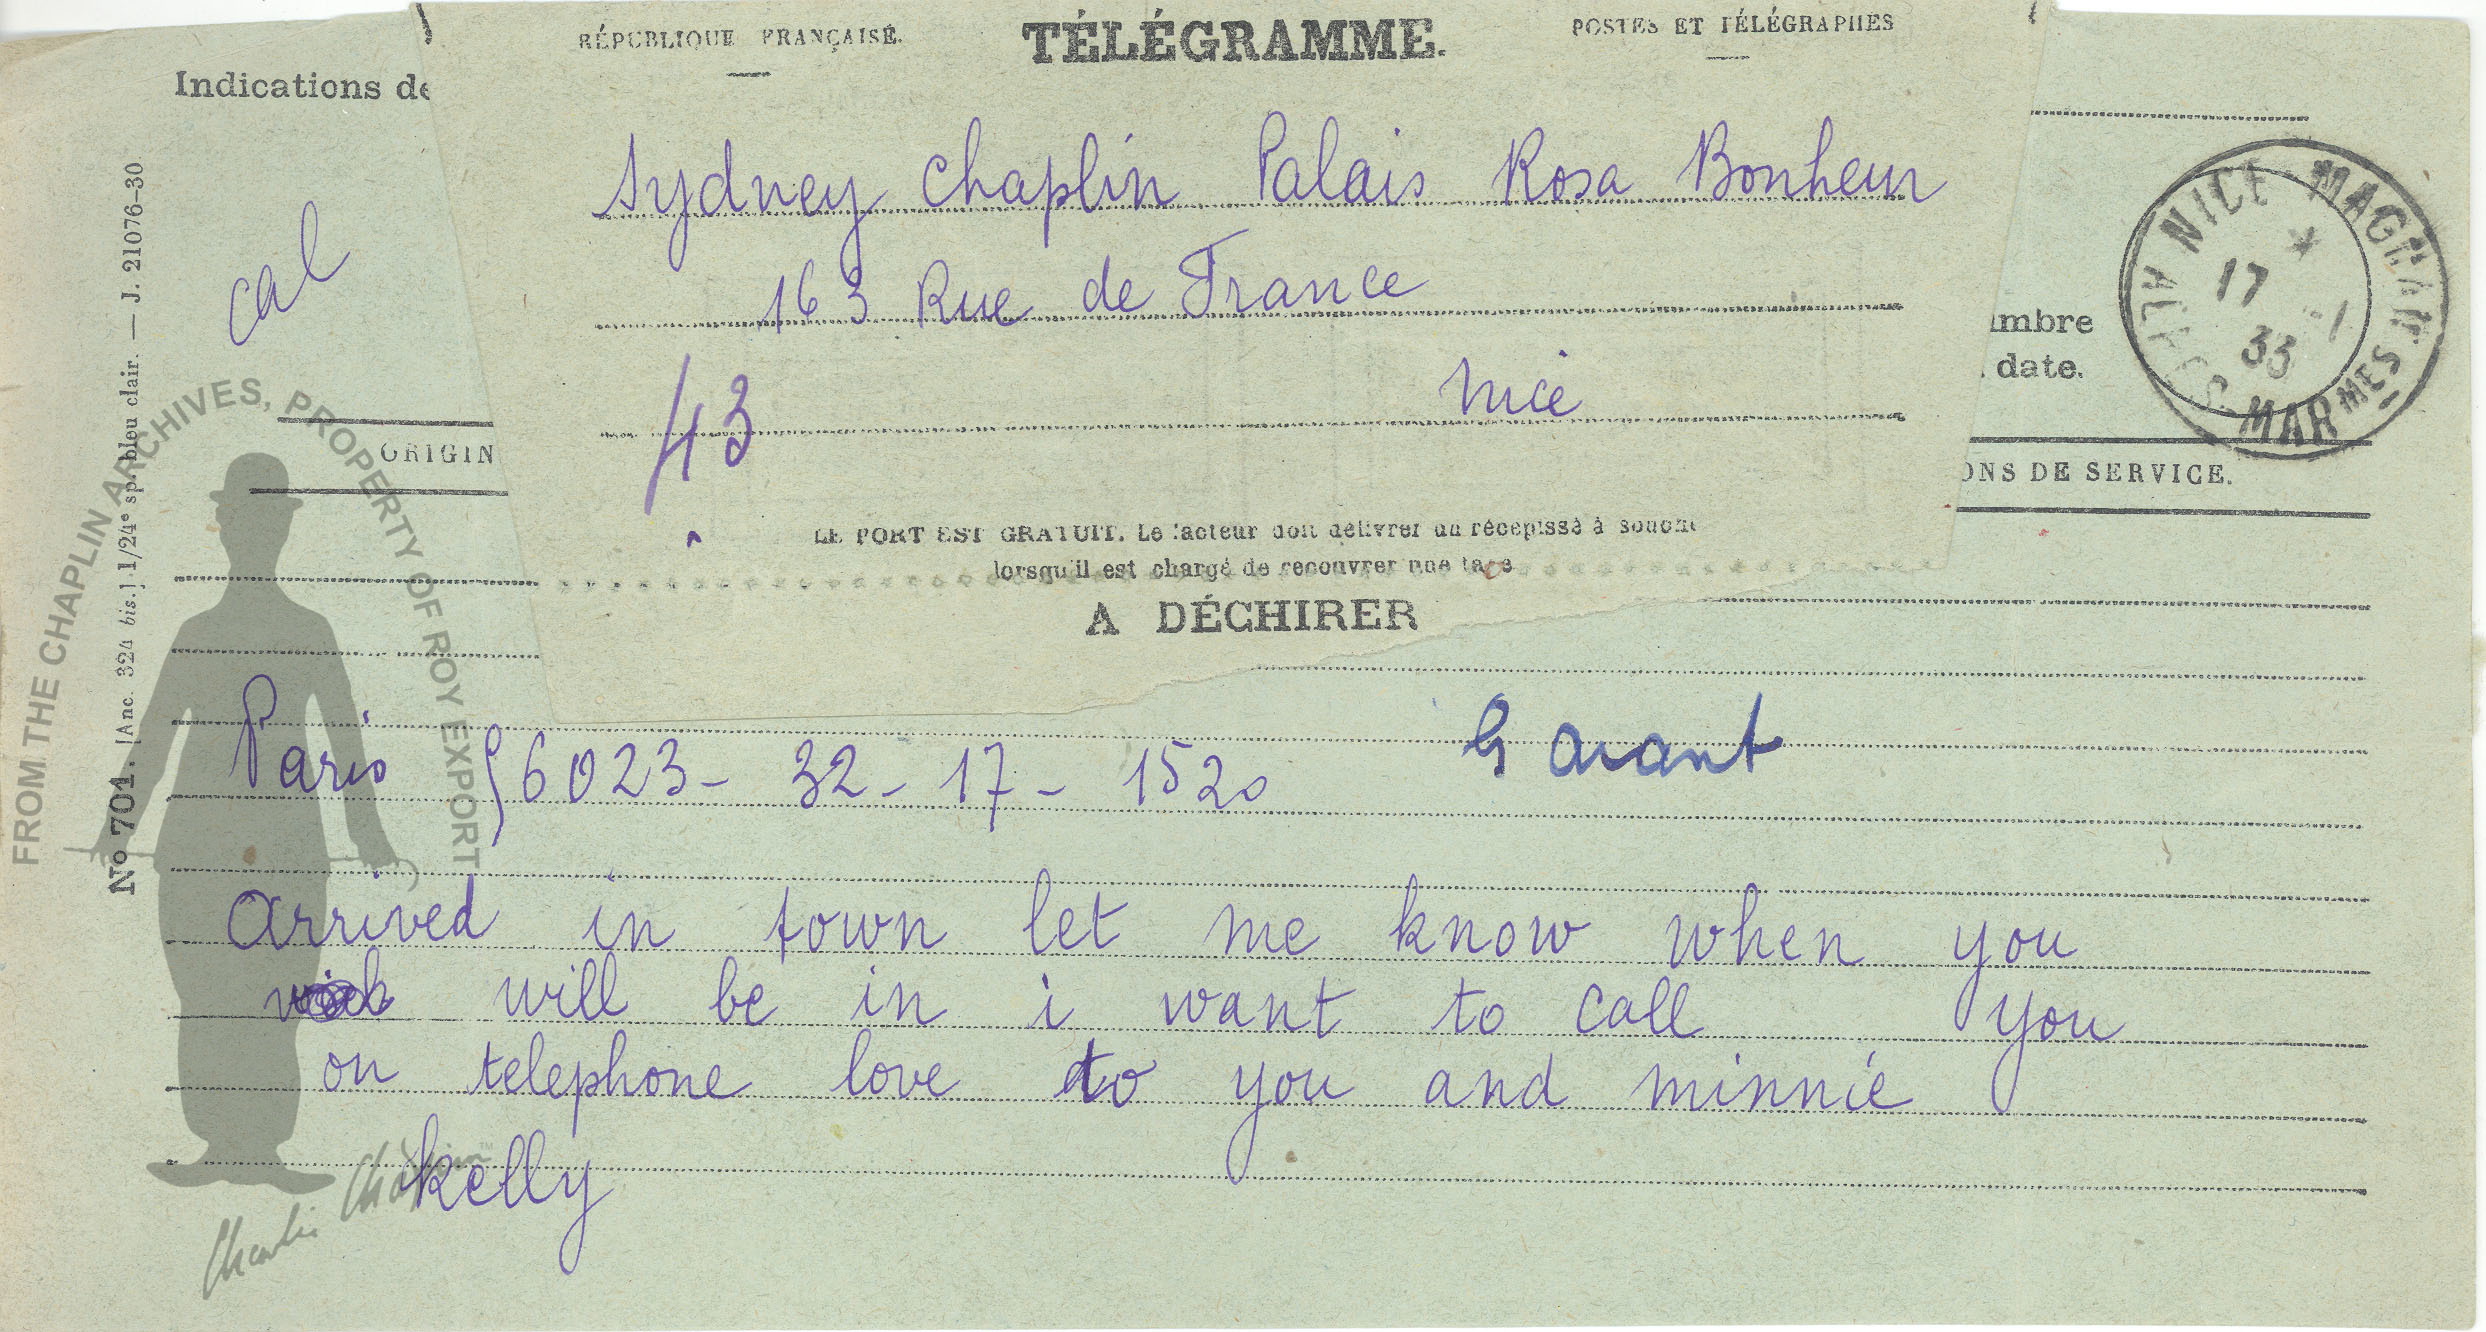 RÉPUBLIQUE FRANÇAISE.
TÉLÉGRAMME.
POSTES ET TÉLÉGRAPHES
Indications de
Sydney Chaplin Palais Rosa Bonheur
163 Rue de France
Nice
43
cal
NICE - MAGENTA
* 17 -1 33
ALPES - MARMES
imbre
. date.
ORIGIN
ONS DE SERVICE.
LE PORT EST GRATUIT. Le facteur doit délivrer un récépissé à souche
lorsqu'il est chargé de recouvrer une taxe
A DÉCHIRER
No 701. [Anc. 324 bis.] 1/24e sp. bleu clair. — J. 21076-30
Paris 56023 - 32 - 17 - 1520
arrived in town let me know when you
will be in i want to call you
on telephone love to you and minnie
kelly
FROM THE CHAPLIN ARCHIVES, PROPERTY OF ROY EXPORT
Charlie Chaplin